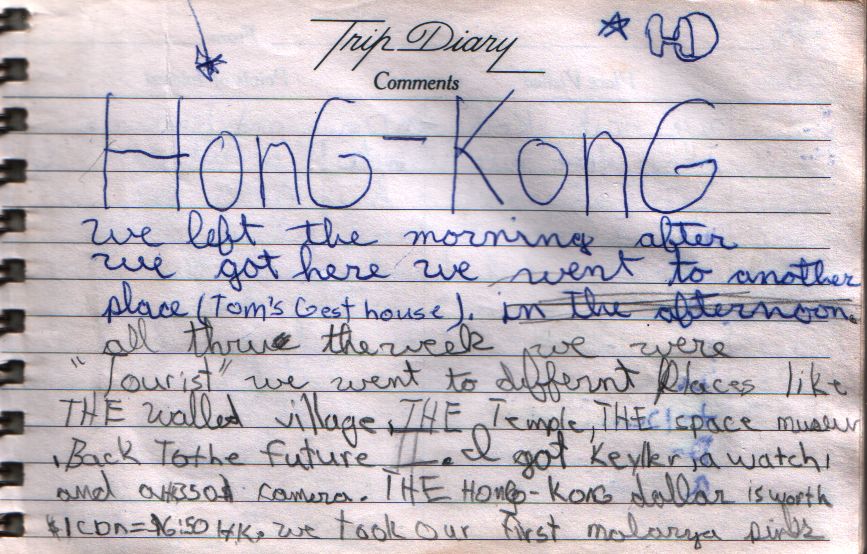 Trip Diary
HD
Comments
HonG-KonG
we left the morning after
we got here we went to another
place (Tom's Gest house). in the afternoon.
all thrue the week we were
"Tourist" we went to differnt Places like
THE walled village, THE Temple, THE space museum
, Back To the Future II. I got Keyller, a watch,
and a camera. THE Hong-Kong dollar is worth
$1 CDN=$6.50 HK. we took our First malarya